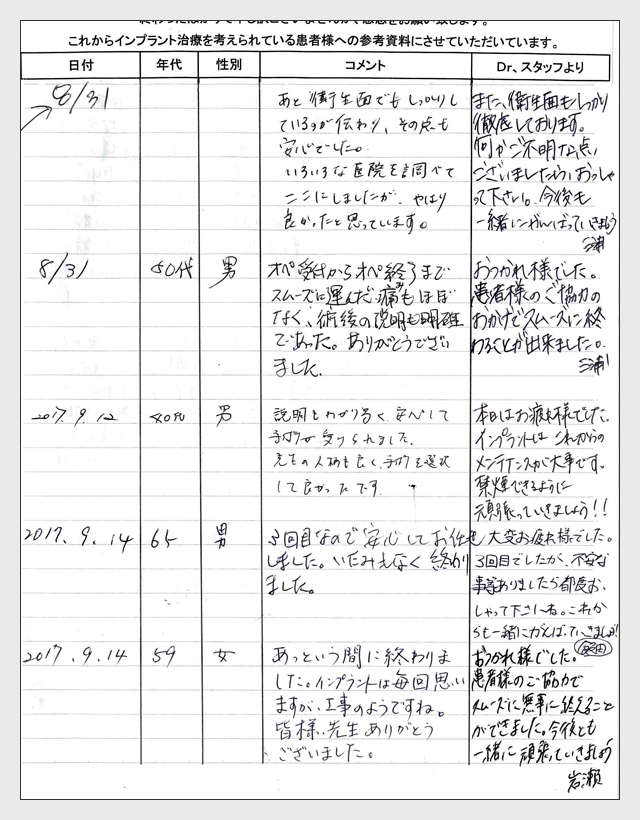 終わったばかりで申し訳ございませんがご感想をお願い致します。
これからインプラント治療を考えられている患者様への参考資料にさせていただいています。
日付 年代 性別 コメント Dr、スタッフより
8/31
あと衛生面でもしっかりし
ているのが伝わり、その点も
安心でした。
いろいろな医院を調べて
ここにしましたが、やはり
良かったと思っています。
また、衛生面もしっかり
徹底しております。
何かご不明な点、
ございましたら、おっしゃ
って下さい。今後も
一緒にがんばっていきましょう
三浦
8/31 50代 男
オペ受付からオペ終了まで
スムーズに運んだ。痛みもほぼ
なく、術後の説明も明確
であった。ありがとうござい
ました。
おつかれ様でした。
患者様のご協力の
おかげでスムーズに終
わることが出来ました。
三浦
2017.9.12 40代 男
説明もわかり易く、安心して
手術が受けられました。
先生の人柄も良く、手術を選択
して良かったです。
本日はお疲れ様でした。
インプラントはこれからの
メンテナンスが大事です。
禁煙できるように
頑張っていきましょう!!
2017.9.14 65 男
3回目なので安心してお任せ
しました。いたみもなく終わり
ました。
大変お疲れ様でした。
3回目でしたが、不安な
事等ありましたら都度お
しゃって下さいね。これか
らも一緒にがんばっていきましょう!
2017.9.14 59 女
あっという間に終わりま
した。インプラントは毎回思い
ますが、工事のようですね。
皆様、先生ありがとう
ございました。
おつかれ様でした。
患者様のご協力で
スムーズに無事に終えること
ができました。今後とも
一緒に頑張っていきましょう
岩瀬